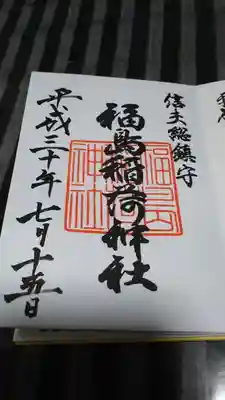 信夫総鎮守
福島稲荷神社
平成三十年七月十五日